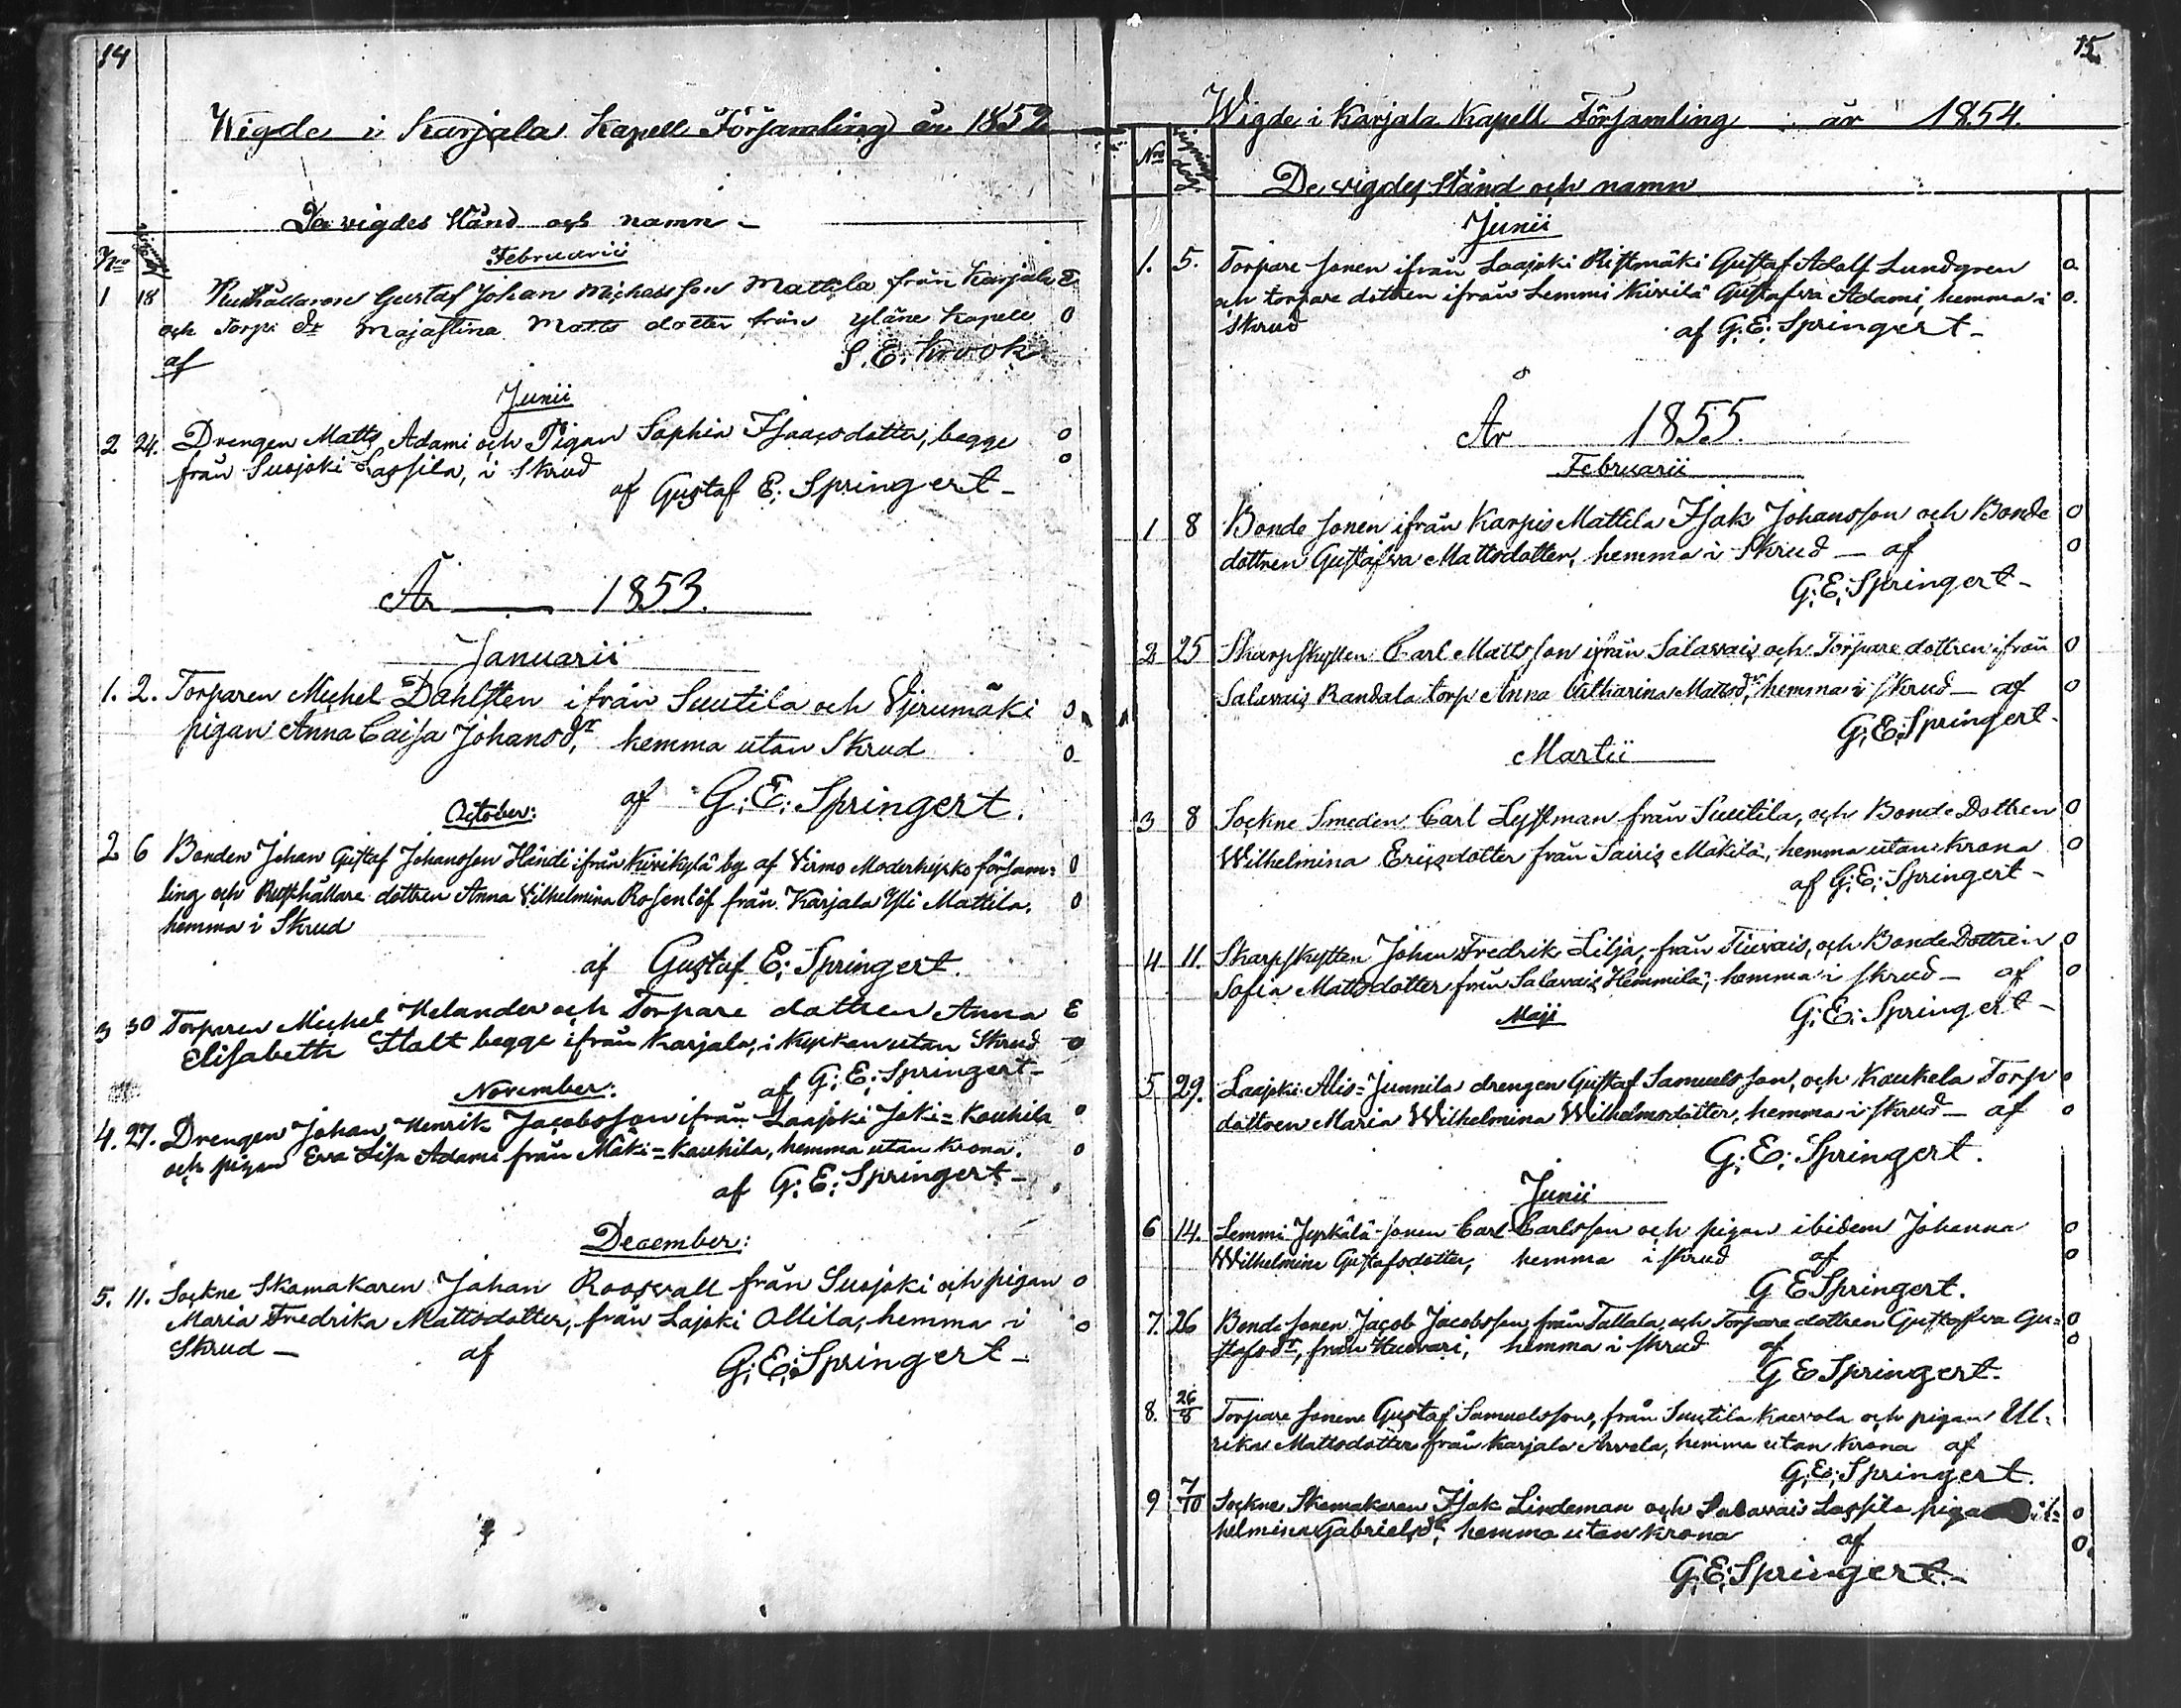 14
Wigde i Karjala Kapell Församling år 1852
De vigdes stånd och namn
Nro
Februarii
1 18 Rusthållaren Gustaf Johan Michelsson Mattila från Karjala E
och Torp: dr Majastina Matts dotter från Yläne Kapell 0
af S. E. Krook
Junii
2 24. Drengen Matts Adami och Pigan Sophia Isaacsdotter, begge 0
från Susjoki Lassila, i Skrud 0
af Gustaf E: Springert
År 1853.
Januarii
1. 2. Torparen Michel Dahlsten ifrån Suutila och Vjerumäki 0
pigan Anna Caisa Johansdr, hemma utan Skrud 0
af G: E: Springert.
October:
2 6 Bonden Johan Gustaf Johansson Händi ifrån Kivikylä by af Virmo Moderkyrko försam= 0
ling och Rusthållare dottren Anna Vilhelmina Rosenlöf från Karjala Yli Mattila. 0
hemma i Skrud
af Gustaf E: Springert.
3 30 Torparen Michel Helander och Torpare dottren Anna E
Elisabeth Stalt begge ifrån Karjala, i Kyrkan utan Skrud 0
af G: E: Springert
November:
4. 27. Drengen Johan Henrik Jacobsson ifrån Laajoki Joki=Kouhila 0
och pigan Eva Lisa Adami från Mäki=Kauhila, hemma utan krona. 0
af G: E: Springert
December:
5. 11. Sockne Skomakaren Johan Roosvall från Susjoki och pigan 0
Maria Fredrika Mattsdotter, från Lajoki Ollila, hemma i 0
Skrud af G: E: Springert
15
Wigde i Karjala Kapell Församling år 1854.
Nro
De vigdes stånd och namn
Junii
1. 5. Torpare sonen ifrån Laajoki Ristmäki Gustaf Adolf Lundgren 0
och torpare dottren ifrån Lemmi Kivilä Gustafva Adami, hemma i 0.
Skrud af G: E: Springert
År 1855.
Februarii
1 8 Bonde sonen ifrån Karpis Mattila Isak Johansson och Bonde 0
dottren Gustafva Mattsdotter, hemma i Skrud af 0
G: E: Springert
2 25 Skarpskytten Carl Mattsson ifrån Salavais och Torpare dottren ifrån 0
Salavais Randala torp Anna Catharina Mattsdr, hemma i skrud af 0
G: E: Springert
Martii
3 8 Sockne Smeden Carl Lystman från Suutila, och Bonde Dottren 0
Wilhelmina Ericsdotter från Sairis Mäkilä, hemma utan krona 0
af G: E: Springert
4 11. Skarpskytten Johan Fredrik Lilja, från Tiuvais, och Bonde Dottren 0
Sofia Mattsdotter från Salavais Hemmilä, hemma i skrud af 0
G: E: Springert
Maji
5 29. Laajoki Alis=Junnila drengen Gustaf Samuelsson, och Kaukela Torp 0
dottren Maria Wilhelmina Wilhelmsdotter, hemma i skrud af 0
G: E: Springert.
Junii
6 14. Lemmi Jyrkälä sonen Carl Carlsson och pigan ibidem Johanna 0
Wilhelmina Gustafsdotter, hemma i skrud af 0
G E Springert.
7. 26 Bonde sonen Jacob Jacobsson, från Tallala, och Torpare dottren Gustafva Gu= 0
stafsdr, från Huovari, hemma i skrud af 0
G E Springert.
8. 26/8 Torpare sonen Gustaf Samuelsson, från Suutila Kaerola och pigan Ul=
rika Mattsdotter från Karjala Arvela, hemma utan krona af
G: E: Springert.
9 7/10 Sockne Skomakaren Isak Lindeman och Salavais Lassila pigan Wil= 0
helmina Gabrielsdr, hemma utan krona af 0
G: E: Springert.